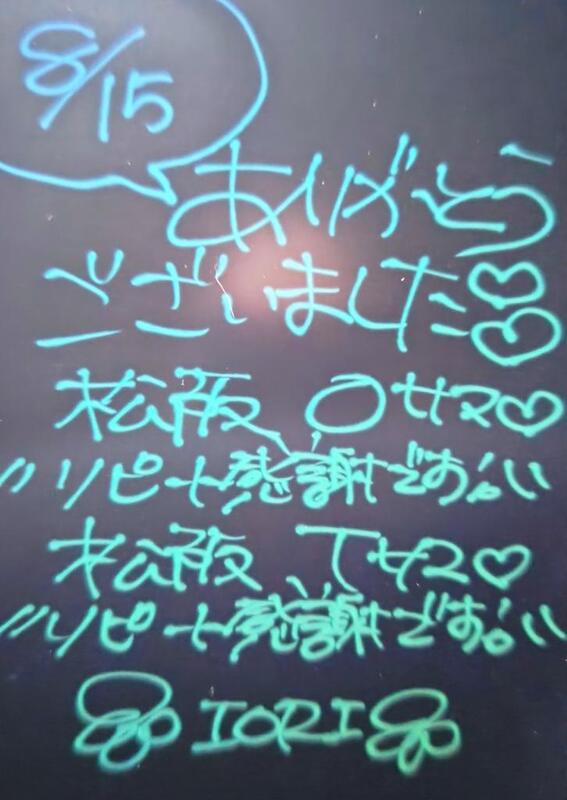 8/15
ありがとう
ございました♡♡
松阪 Oサマ♡
〃リピート感謝です!!〃
松阪 Tサマ♡
〃リピート感謝です!!〃
IORI